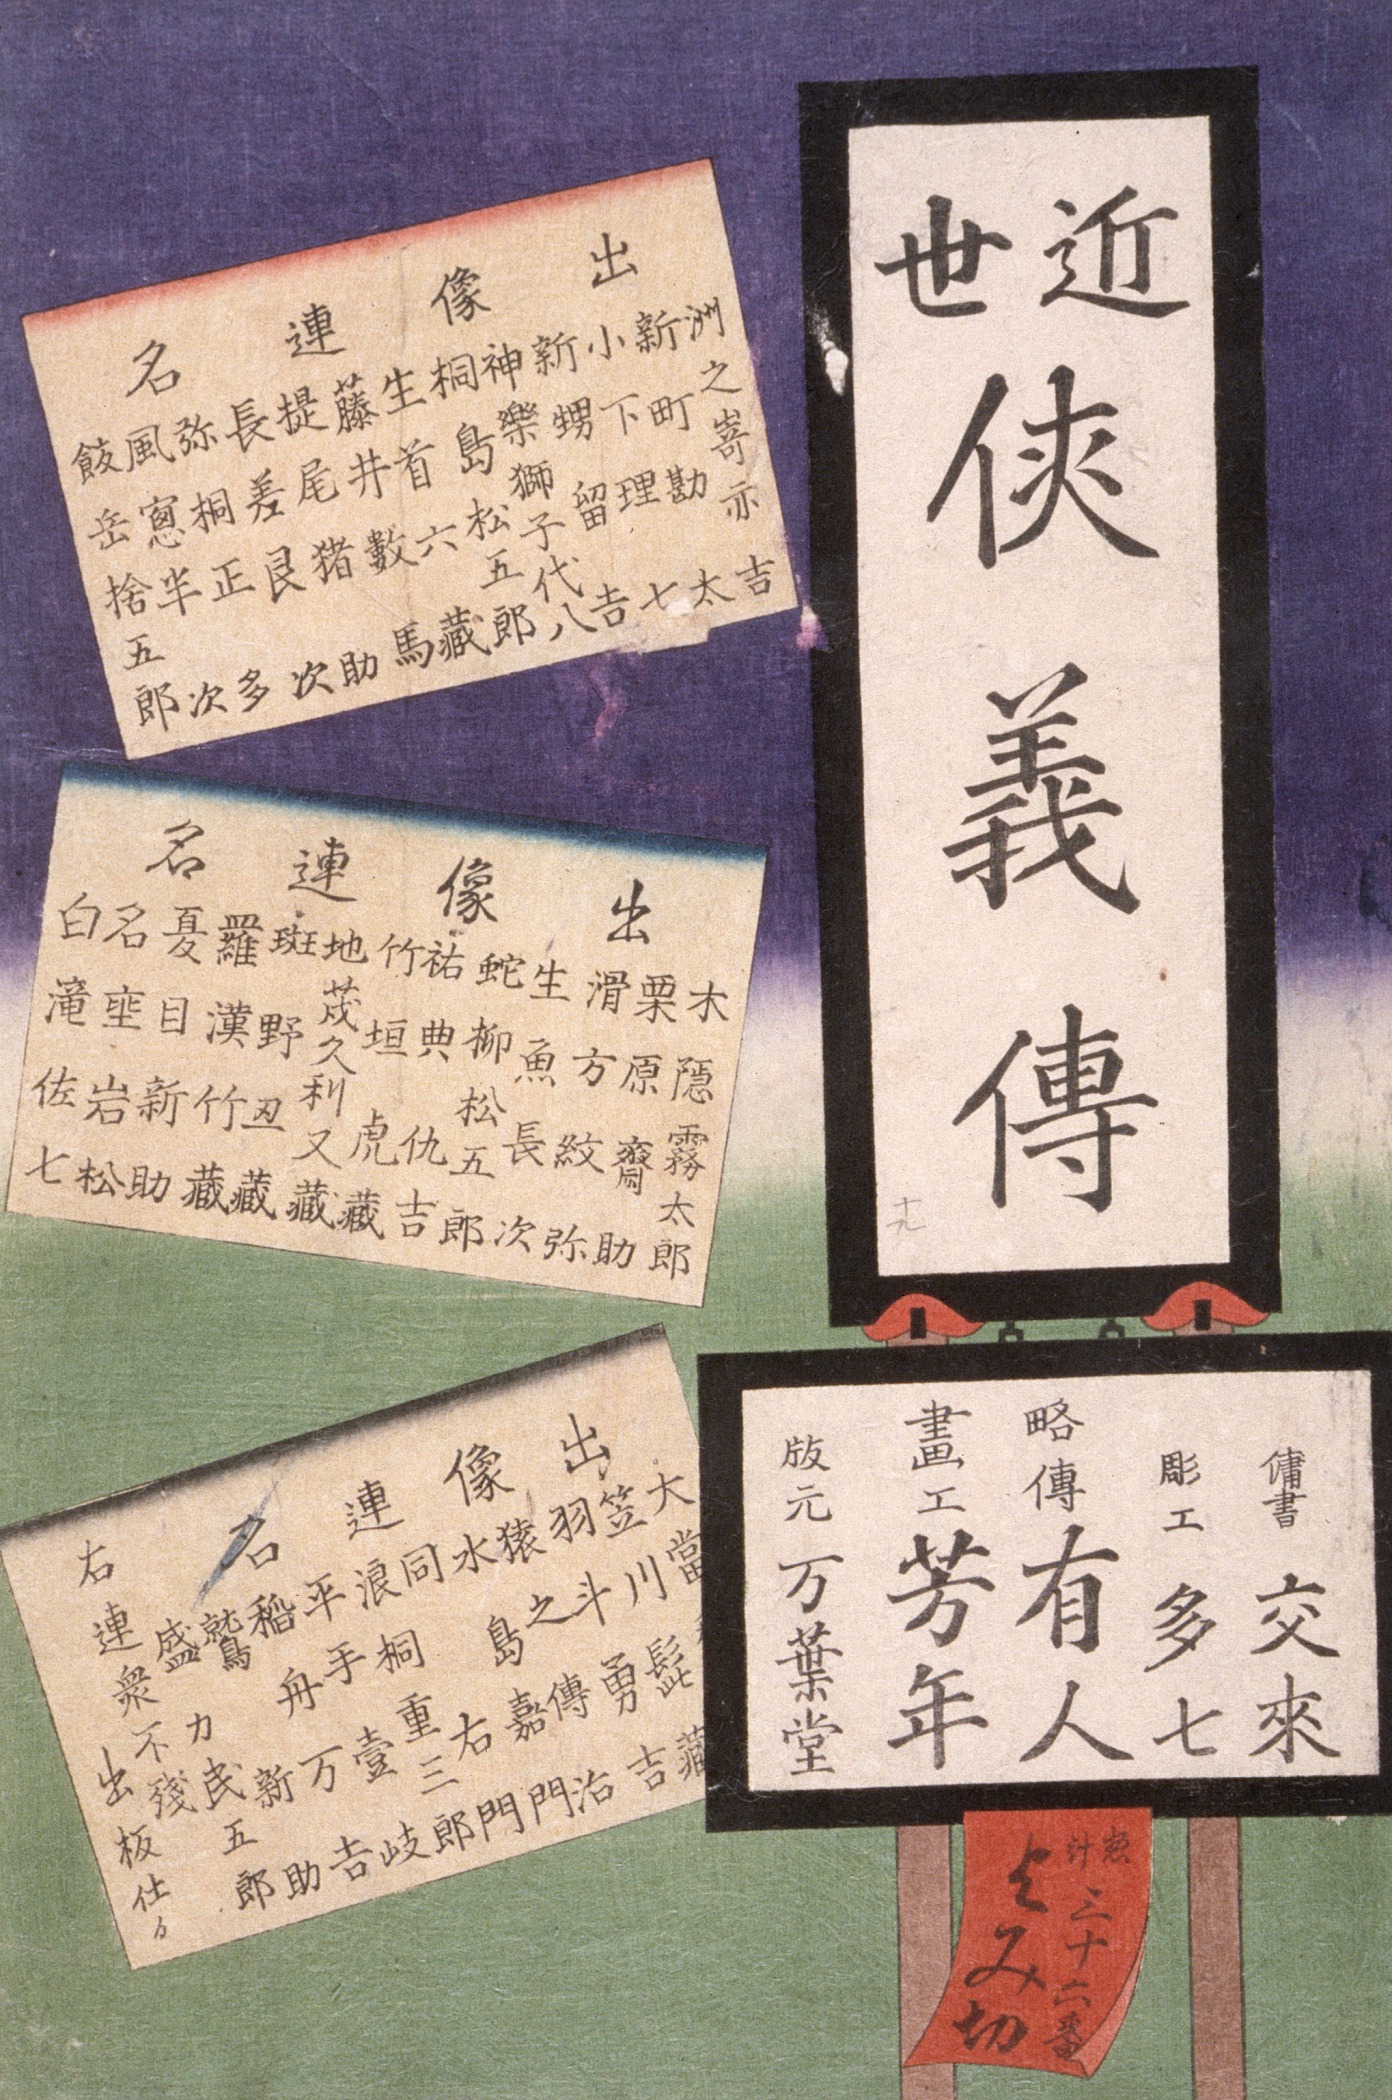 近世
俠義傳
傭書 交來
彫工 多七
略傳 有人
畫工 芳年
版元 万葉堂
三十六番
よみ切
出像連名
洲之嵜亦吉
新町勘太
小下理七
新甥留吉
神樂獅子代八
桐島松五郎
生首六藏
藤井數馬
提尾猪助
長差艮次
弥桐正多
風窓半次
飯岳捨五郎
出像連名
木隠霧太郎
栗原齋助
滑方紋弥
生魚長次
蛇柳松五郎
祐典仇吉
竹垣虎藏
地茂久利又藏
斑野丑藏
羅漢竹藏
夏目新助
名垂岩松
白滝佐七
出像連名
大當
髭藏
笠川勇吉
羽斗傳治
猿之嘉門
水島右門
同桐重三郎
浪手壹岐
平舟万吉
稲新助
鷲
盛力民五郎
右連衆不殘
出板仕
十九